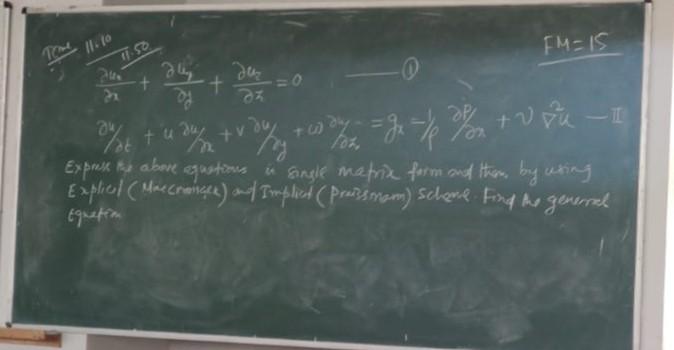 Time 11.10
11.50
FM=15
∂uₓ/∂x + ∂u_y/∂y + ∂u_z/∂z = 0 —— ①
∂u/∂t + u ∂u/∂x + v ∂u/∂y + ω ∂u/∂z = gₓ - 1/ρ ∂P/∂x + ν ∇²u — II
Express the above equations in single matrix form and then by using
Explicit (Maccormack) and Implicit (preissmann) scheme. Find the general
Equation